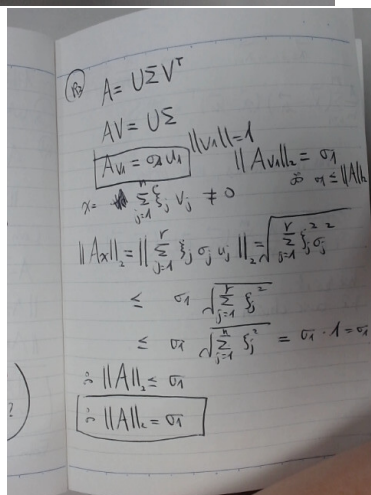 R3
A = UΣV^T
AV = UΣ
Av₁ = σ₁u₁ ||v₁|| = 1 ||Av₁||₂ = σ₁
∴ σ₁ ≤ ||A||₂
x = Σ_{j=1}^{n} ξ_j v_j ≠ 0
||Ax||₂ = ||Σ_{j=1}^{r} ξ_j σ_j u_j||₂ = √(Σ_{j=1}^{r} ξ_j² σ_j²)
≤ σ₁ √(Σ_{j=1}^{r} ξ_j²)
≤ σ₁ √(Σ_{j=1}^{n} ξ_j²) = σ₁ · 1 = σ₁
∴ ||A||₂ ≤ σ₁
∴ ||A||₂ = σ₁
?